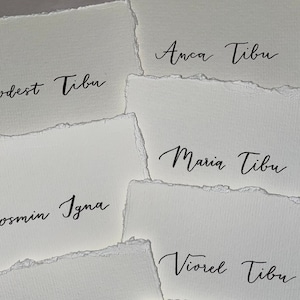 Anca Tibu
odest Tibu
Maria Tibu
osmin Igna
Viorel Tibu